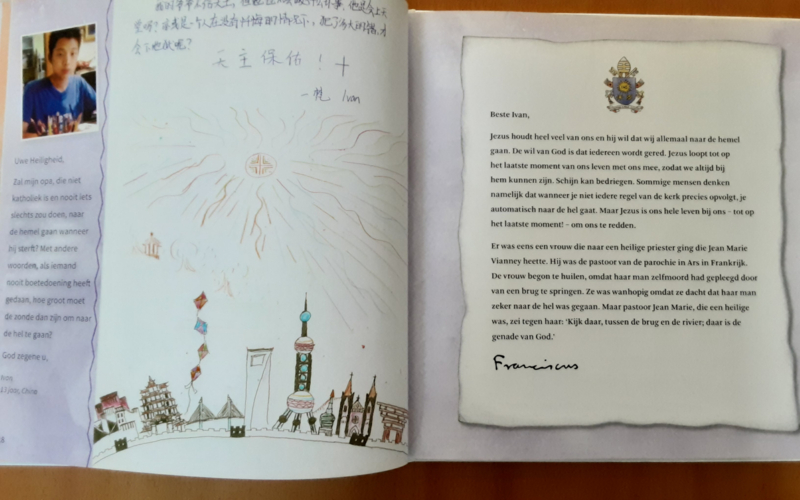 Uwe Heiligheid,
Zal mijn opa, die niet
katholiek is en nooit iets
slechts zou doen, naar
de hemel gaan wanneer
hij sterft? Met andere
woorden, als iemand
nooit boetedoening heeft
gedaan, hoe groot moet
de zonde dan zijn om naar
de hel te gaan?
God zegene u,
China
天主保佑！
Ivan
Beste Ivan,
Jezus houdt heel veel van ons en hij wil dat wij allemaal naar de hemel
gaan. De wil van God is dat iedereen wordt gered. Jezus loopt tot op
het laatste moment van ons leven met ons mee, zodat we altijd bij
hem kunnen zijn. Schijn kan bedriegen. Sommige mensen denken
namelijk dat wanneer je niet iedere regel van de kerk precies opvolgt, je
automatisch naar de hel gaat. Maar Jezus is ons hele leven bij ons – tot op
het laatste moment! – om ons te redden.
Er was eens een vrouw die naar een heilige priester ging die Jean Marie
Vianney heette. Hij was de pastoor van de parochie in Ars in Frankrijk.
De vrouw begon te huilen, omdat haar man zelfmoord had gepleegd door
van een brug te springen. Ze was wanhopig omdat ze dacht dat haar man
zeker naar de hel was gegaan. Maar pastoor Jean Marie, die een heilige
was, zei tegen haar: ‘Kijk daar, tussen de brug en de rivier; daar is de
genade van God.’
Franciscus